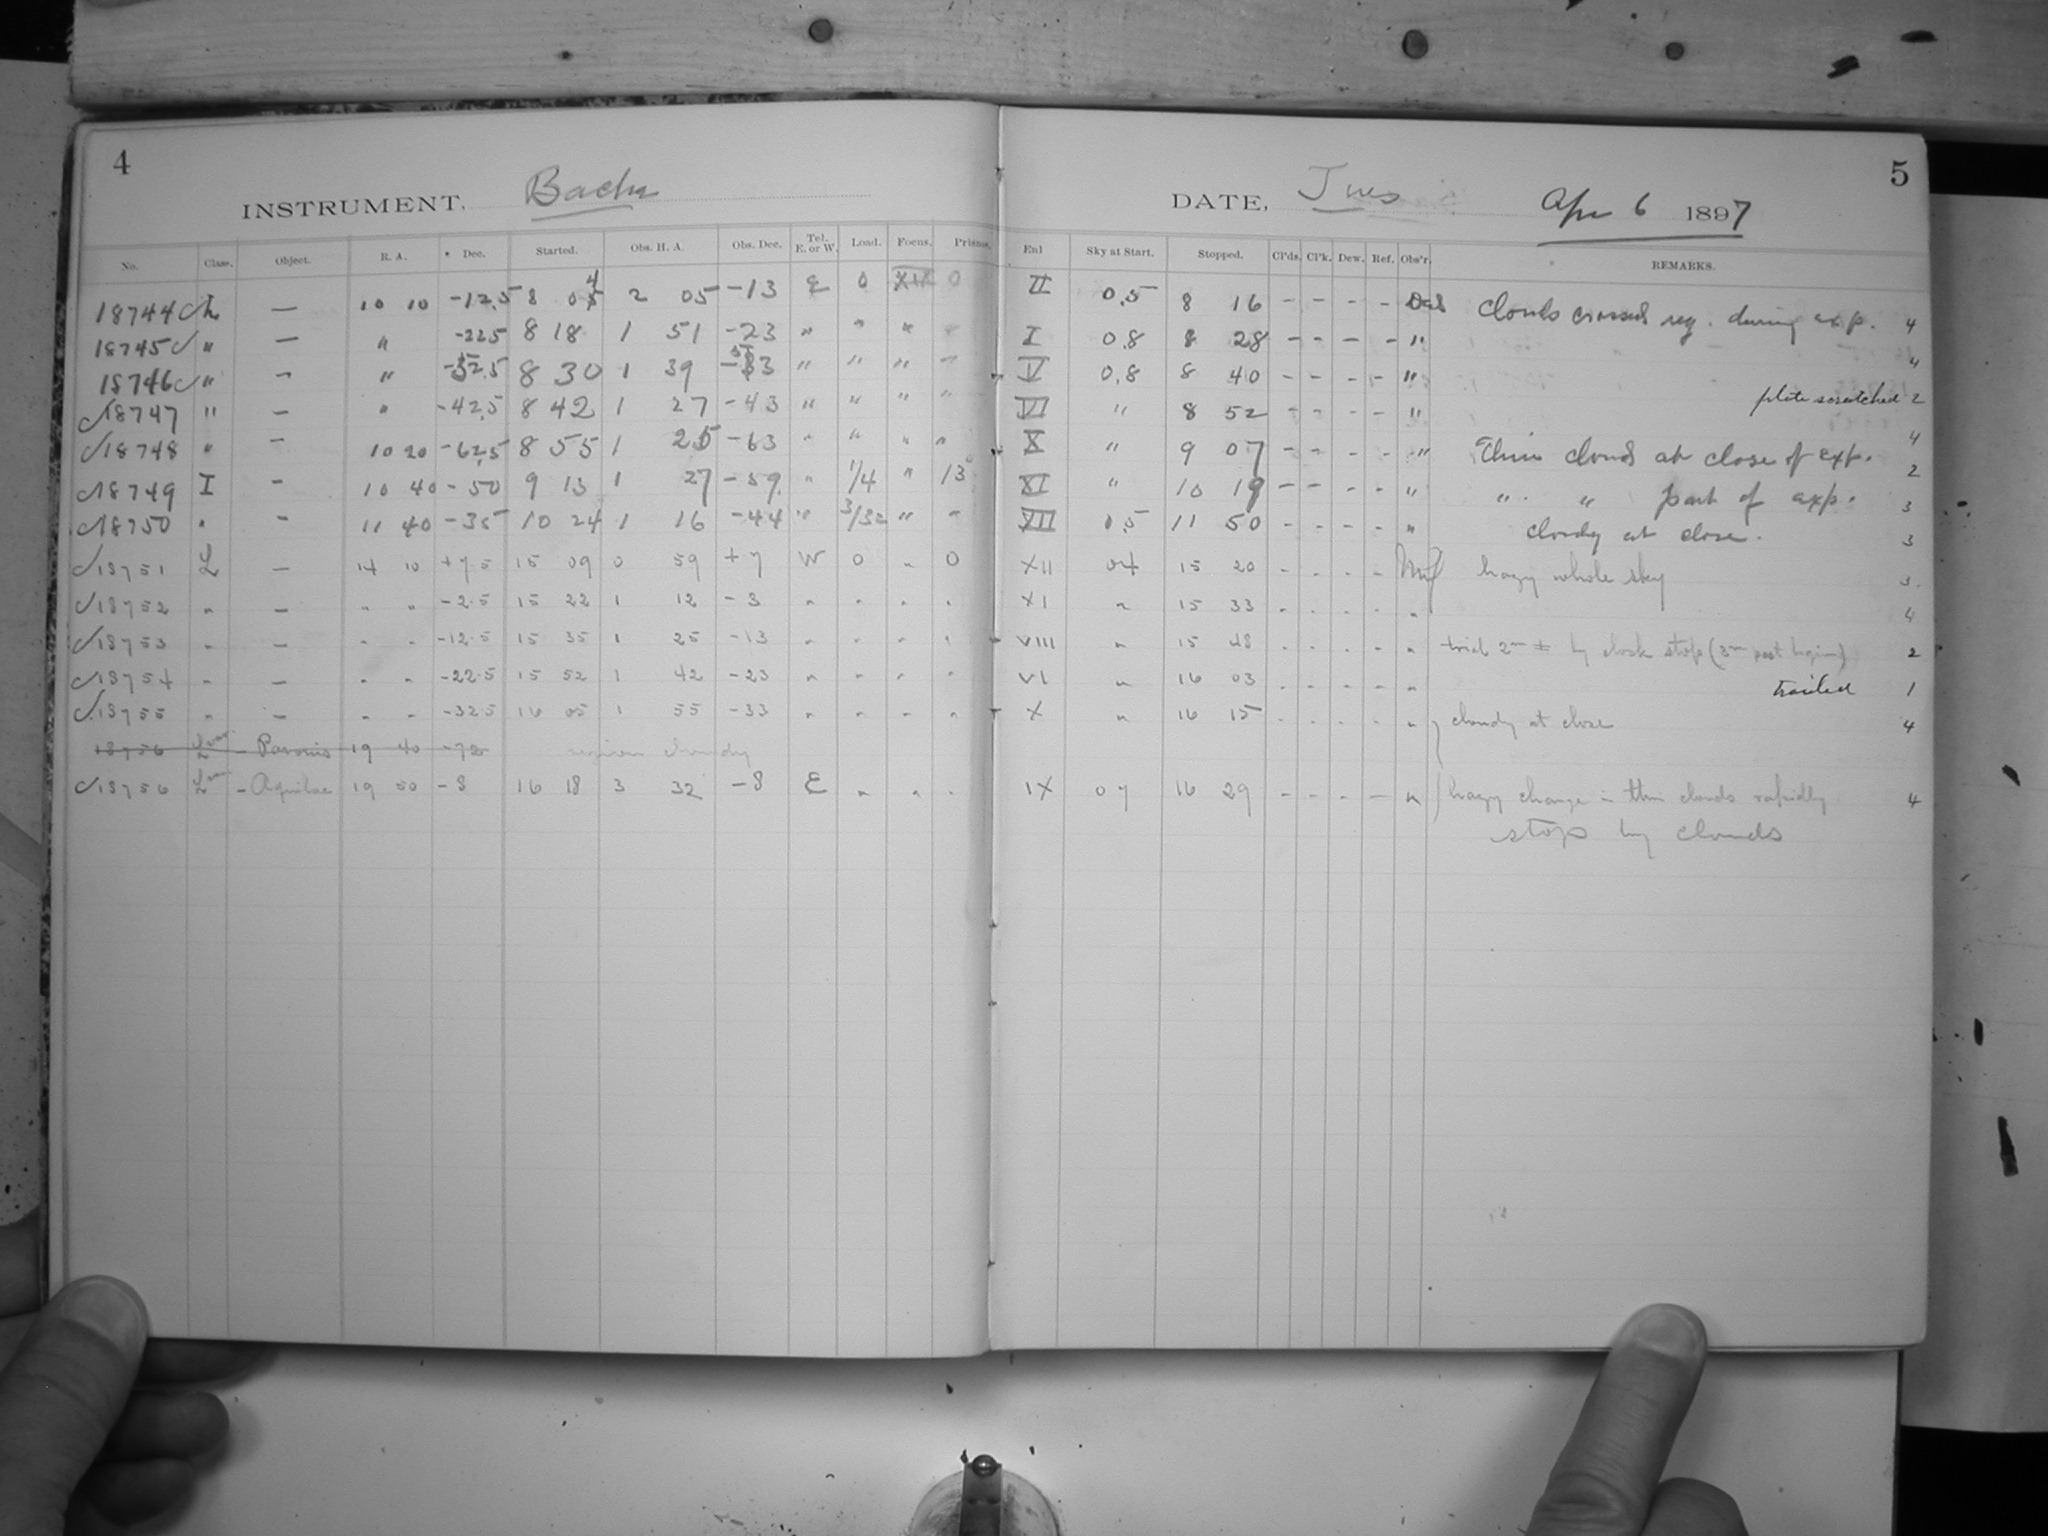 4
INSTRUMENT, Bache
DATE, Tues Apr 6 1897
5
No. Class. Object. R. A. Dec. Started. Obs. H. A. Obs. Dec. Tel. E. or W. Load. Focus. Prisms. Enl Sky at Start. Stopped. Cl'ds. Cl'k. Dew. Ref. Obs'r. REMARKS.
18744 L — 10 10 -12.5 8 04 2 05 -13 E 0 XII 0 II 0.5 8 16 - - - - Clouds crossed reg. during exp. 4
18745 " — " -22.5 8 18 1 51 -23 " " " " I 0.8 8 28 - - - - " 4
18746 " - " -52.5 8 30 1 39 -53 " " " " V 0.8 8 40 - - - - " plate scratched 2
18747 " — " -42.5 8 42 1 27 -43 " " " " VI " 8 52 - - - - " 4
18748 " - 10 20 -62.5 8 55 1 25 -63 " " " " X " 9 07 - - - - " Thin clouds at close of exp. 2
18749 I - 10 40 -50 9 13 1 27 -59 " 1/4 " 13 XI " 10 19 - - - - " " " part of exp. 3
18750 " - 11 40 -35 10 24 1 16 -44 " 3/32 " " XII 0.5 11 50 - - - - " cloudy at close. 3
18751 L — 14 10 +7.5 15 09 0 59 +7 W 0 " 0 XII 04 15 20 - - - - hazy whole sky 3
18752 " — " " -2.5 15 22 1 12 -3 " " " " XI " 15 33 - - - - " 4
18753 " — " " -12.5 15 35 1 25 -13 " " " " VIII " 15 48 - - - - " trial 2m ± by clock stop (3m past begin) 2
18754 " — " " -22.5 15 52 1 42 -23 " " " " VI " 16 03 - - - - " trailed 1
18755 " — " " -32.5 16 05 1 55 -33 " " " " X " 16 15 - - - - " cloudy at close 4
18756 L var - Pavonis 19 40 -72 region cloudy
18756 L - Aquilae 19 50 -8 16 18 3 32 -8 E " " " IX 07 16 29 - - - - " hazy change in thin clouds rapidly 4
stops by clouds